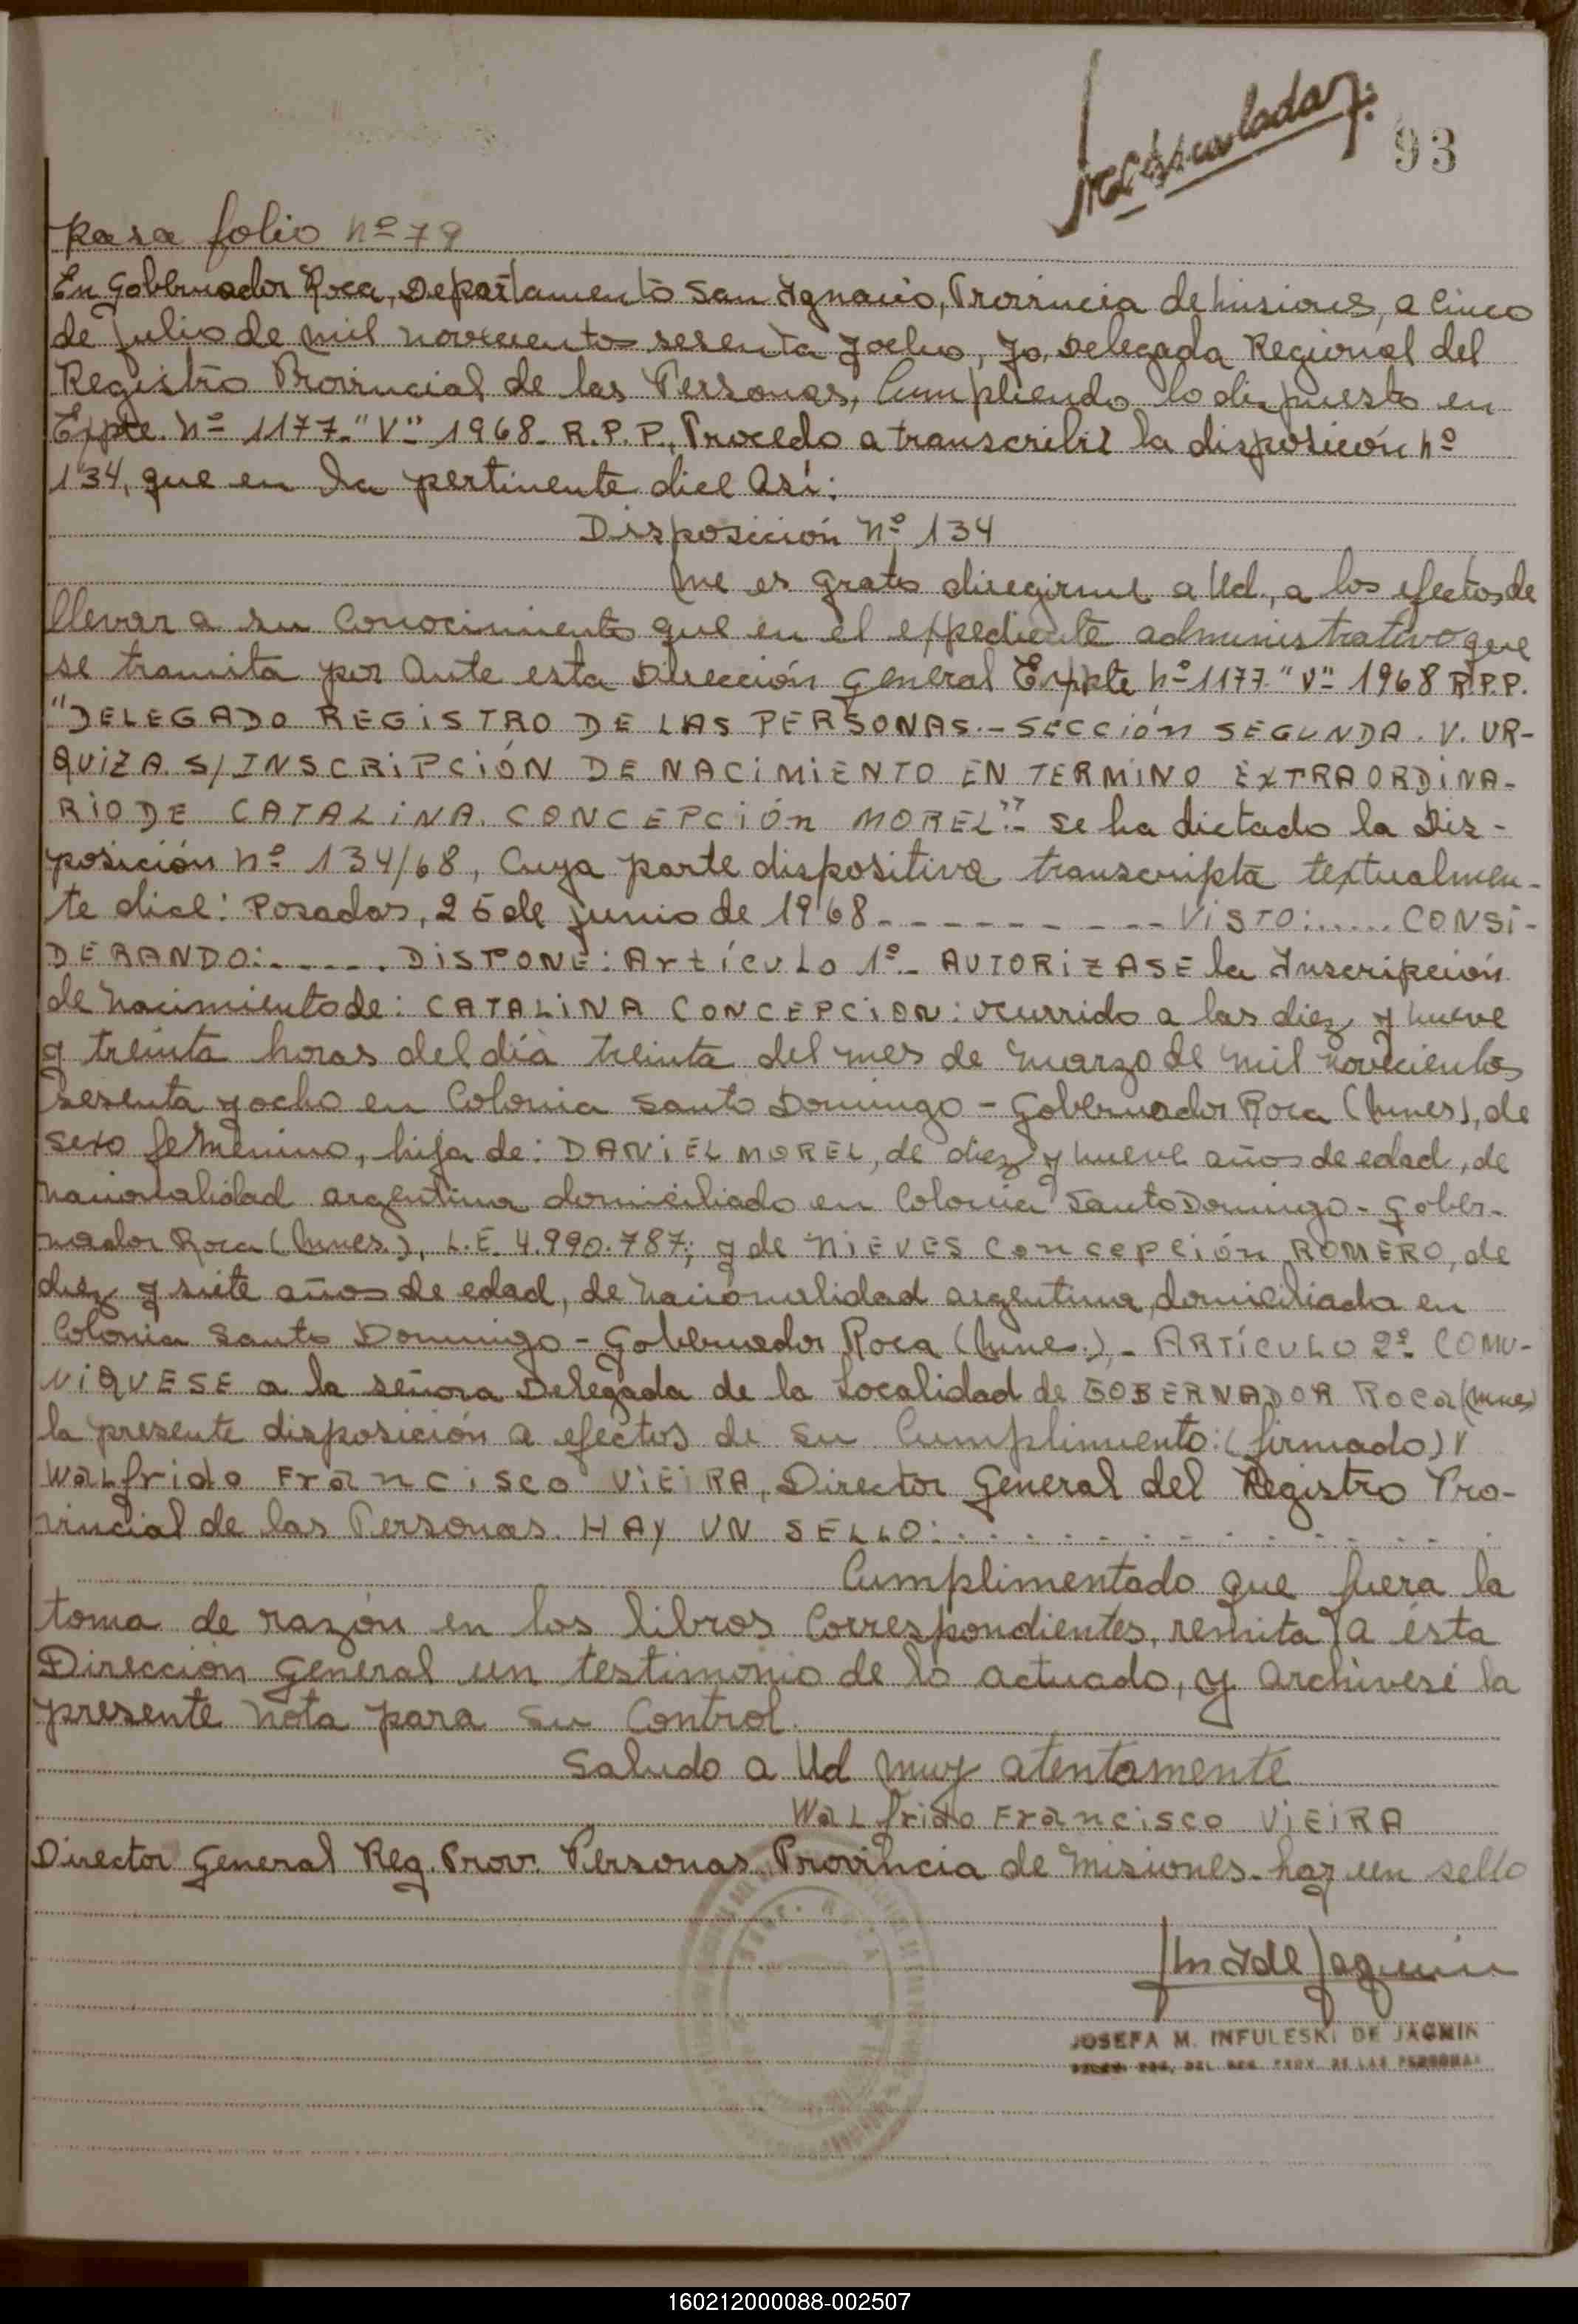 93
pasa folio nº 79
En Gobernador Roca, Departamento San Ignacio, Provincia de Misiones, a cinco
de julio de mil novecientos sesenta y ocho, yo, Delegada Regional del
Registro Provincial de las Personas, Cumpliendo lo dispuesto en
Expte. nº 1177-"V"- 1968- R.P.P., Procedo a transcribir la disposición nº
134, que en la pertinente dice así:
Disposición nº 134
Me es grato dirigirme a Ud., a los efectos de
llevar a su Conocimiento que en el expediente administrativo que
se tramita por Ante esta Dirección General Expte nº 1177-"V"- 1968 R.P.P.
"DELEGADO REGISTRO DE LAS PERSONAS.- SECCIÓN SEGUNDA. V. UR-
QUIZA. S/INSCRIPCIÓN DE NACIMIENTO EN TERMINO EXTRAORDINA-
RIO DE CATALINA. CONCEPCIÓN MOREL".- se ha dictado la Dis-
posición nº 134/68, Cuya parte dispositiva transcripta textualmen-
te dice: Posadas, 25 de junio de 1968---------- VISTO:...... CONSI-
DERANDO:...... DISPONE: Artículo 1º- AUTORIZASE la Inscripción
de nacimiento de: CATALINA CONCEPCION: ocurrido a las diez y nueve
y treinta horas del día treinta del mes de marzo de mil novecientos
sesenta y ocho en Colonia Santo Domingo - Gobernador Roca (Mnes), de
sexo femenino, hija de: DANIEL MOREL, de diez y nueve años de edad, de
nacionalidad argentina domiciliado en Colonia Santo Domingo - Gober-
nador Roca (Mnes.), L.E. 4.990.787; y de NIEVES CONCEPCIÓN ROMERO, de
diez y siete años de edad, de nacionalidad argentina, domiciliada en
Colonia Santo Domingo - Gobernador Roca (Mnes.).- ARTÍCULO 2º- COMU-
NIQUESE a la señora Delegada de la Localidad de GOBERNADOR ROCA (Mnes)
la presente disposición a efectos de su Cumplimiento: (firmado)
Walfrido Francisco VIEIRA, Director General del Registro Pro-
vincial de las Personas. HAY UN SELLO:..............
Cumplimentado que fuera la
toma de razón en los libros Correspondientes, remita a ésta
Dirección General un testimonio de lo actuado, y archívese la
presente nota para su Control.
Saludo a Ud muy atentamente
Walfrido Francisco VIEIRA
Director General Reg. Prov. Personas Provincia de Misiones- hay un sello
JOSEFA M. INFULESKI DE JAGMIN
DELEG. REG. DEL REG. PROV. DE LAS PERSONAS
160212000088-002507